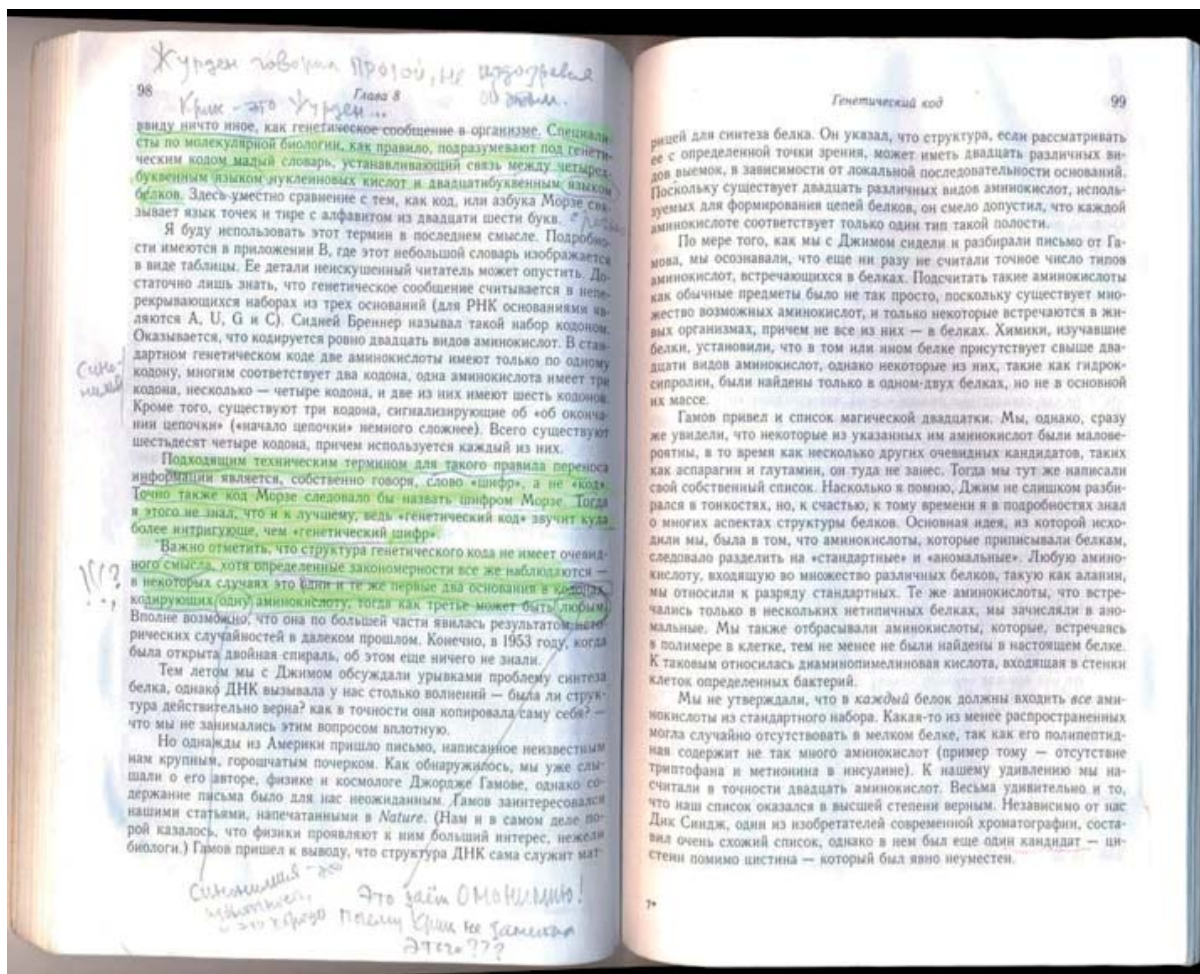 Журден говорил ПРОЗОЙ, не подозревая
об этом.
98
Глава 8
Крик - это Журден...
ввиду ничто иное, как генетическое сообщение в организме. Специали-
сты по молекулярной биологии, как правило, подразумевают под генети-
ческим кодом малый словарь, устанавливающий связь между четырех-
буквенным языком нуклеиновых кислот и двадцатибуквенным языком
белков. Здесь уместно сравнение с тем, как код, или азбука Морзе свя-
зывает язык точек и тире с алфавитом из двадцати шести букв.
Я буду использовать этот термин в последнем смысле. Подробно-
сти имеются в приложении B, где этот небольшой словарь изображается
в виде таблицы. Ее детали неискушенный читатель может опустить. До-
статочно лишь знать, что генетическое сообщение считывается в непе-
рекрывающихся наборах из трех оснований (для РНК основаниями яв-
ляются A, U, G и C). Сидней Бреннер называл такой набор кодоном.
Оказывается, что кодируется ровно двадцать видов аминокислот. В стан-
дартном генетическом коде две аминокислоты имеют только по одному
кодону, многим соответствует два кодона, одна аминокислота имеет три
кодона, несколько — четыре кодона, и две из них имеют шесть кодонов.
Кроме того, существуют три кодона, сигнализирующие об «об оконча-
нии цепочки» («начало цепочки» немного сложнее). Всего существуют
шестьдесят четыре кодона, причем используется каждый из них.
Подходящим техническим термином для такого правила переноса
информации является, собственно говоря, слово «шифр», а не «код».
Точно также код Морзе следовало бы назвать шифром Морзе. Тогда
я этого не знал, что и к лучшему, ведь «генетический код» звучит куда
более интригующе, чем «генетический шифр».
Важно отметить, что структура генетического кода не имеет очевид-
ного смысла, хотя определенные закономерности все же наблюдаются —
!!?
в некоторых случаях это одни и те же первые два основания в кодонах,
кодирующих одну аминокислоту, тогда как третье может быть любым.
Вполне возможно, что она по большей части явилась результатом исто-
рических случайностей в далеком прошлом. Конечно, в 1953 году, когда
была открыта двойная спираль, об этом еще ничего не знали.
Тем летом мы с Джимом обсуждали урывками проблему синтеза
белка, однако ДНК вызывала у нас столько волнений — была ли струк-
тура действительно верна? как в точности она копировала саму себя? —
что мы не занимались этим вопросом вплотную.
Но однажды из Америки пришло письмо, написанное неизвестным
нам крупным, горошчатым почерком. Как обнаружилось, мы уже слы-
шали о его авторе, физике и космологе Джордже Гамове, однако со-
держание письма было для нас неожиданным. Гамов заинтересовался
нашими статьями, напечатанными в Nature. (Нам и в самом деле по-
рой казалось, что физики проявляют к ним больший интерес, нежели
биологи.) Гамов пришел к выводу, что структура ДНК сама служит мат-
Синонимия - это
Это даёт ОМОНИМИЮ!
Почему Крик не заметил
этого???
Генетический код
99
рицей для синтеза белка. Он указал, что структура, если рассматривать
ее с определенной точки зрения, может иметь двадцать различных ви-
дов выемок, в зависимости от локальной последовательности оснований.
Поскольку существует двадцать различных видов аминокислот, исполь-
зуемых для формирования цепей белков, он смело допустил, что каждой
аминокислоте соответствует только один тип такой полости.
По мере того, как мы с Джимом сидели и разбирали письмо от Га-
мова, мы осознавали, что еще ни разу не считали точное число типов
аминокислот, встречающихся в белках. Подсчитать такие аминокислоты
как обычные предметы было не так просто, поскольку существует мно-
жество возможных аминокислот, и только некоторые встречаются в жи-
вых организмах, причем не все из них — в белках. Химики, изучавшие
белки, установили, что в том или ином белке присутствует свыше два-
дцати видов аминокислот, однако некоторые из них, такие как гидрок-
сипролин, были найдены только в одном-двух белках, но не в основной
их массе.
Гамов привел и список магической двадцатки. Мы, однако, сразу
же увидели, что некоторые из указанных им аминокислот были малове-
роятны, в то время как несколько других очевидных кандидатов, таких
как аспарагин и глутамин, он туда не занес. Тогда мы тут же написали
свой собственный список. Насколько я помню, Джим не слишком разби-
рался в тонкостях, но, к счастью, к тому времени я в подробностях знал
о многих аспектах структуры белков. Основная идея, из которой исхо-
дили мы, была в том, что аминокислоты, которые приписывали белкам,
следовало разделить на «стандартные» и «аномальные». Любую амино-
кислоту, входящую во множество различных белков, такую как аланин,
мы относили к разряду стандартных. Те же аминокислоты, что встре-
чались только в нескольких нетипичных белках, мы зачисляли в ано-
мальные. Мы также отбрасывали аминокислоты, которые, встречаясь
в полимере в клетке, тем не менее не были найдены в настоящем белке.
К таковым относилась диаминопимелиновая кислота, входящая в стенки
клеток определенных бактерий.
Мы не утверждали, что в каждый белок должны входить все ами-
нокислоты из стандартного набора. Какая-то из менее распространенных
могла случайно отсутствовать в мелком белке, так как его полипептид-
ная содержит не так много аминокислот (пример тому — отсутствие
триптофана и метионина в инсулине). К нашему удивлению мы на-
считали в точности двадцать аминокислот. Весьма удивительно и то,
что наш список оказался в высшей степени верным. Независимо от нас
Дик Синдж, один из изобретателей современной хроматографии, соста-
вил очень схожий список, однако в нем был еще один кандидат — ци-
стеин помимо цистина — который был явно неуместен.
7*